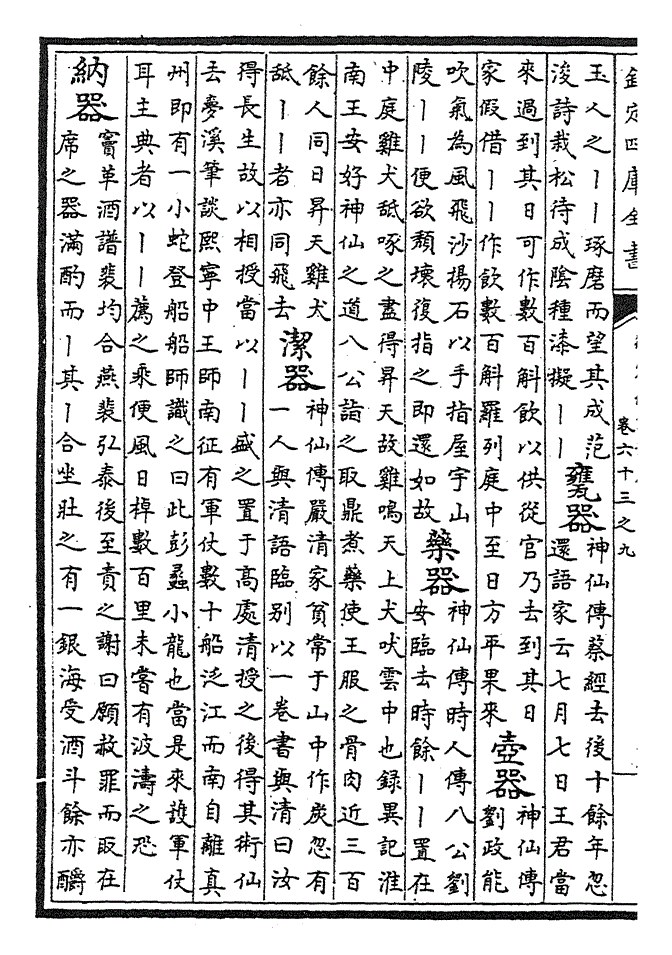 欽定四庫全書
卷六十三之九
玉人之丨丨琢磨而望其成范
浚詩栽松待成陰種漆擬丨丨
甕器
神仙傳蔡經去後十餘年忽
還語家云七月七日王君當
來過到其日可作數百斛飲以供從官乃去到其日
家假借丨丨作飲數百斛羅列庭中至日方平果來
壺器
神仙傳
劉政能
吹氣為風飛沙揚石以手指屋宇山
陵丨丨便欲頽壞復指之即還如故
藥器
神仙傳時人傳八公劉
安臨去時餘丨丨置在
中庭雞犬舐啄之盡得昇天故雞鳴天上犬吠雲中也録異記淮
南王安好神仙之道八公詣之取鼎煮藥使王服之骨肉近三百
餘人同日昇天雞犬
舐丨丨者亦同飛去
潔器
神仙傳嚴清家貧常于山中作炭忽有
一人與清語臨别以一卷書與清曰汝
得長生故以相授當以丨丨盛之置于高處清授之後得其術仙
去夢溪筆談熙寧中王師南征有軍仗數十船泛江而南自離真
州即有一小蛇登船船師識之曰此彭蠡小龍也當是來護軍仗
耳主典者以丨丨薦之乘便風日棹數百里未嘗有波濤之恐
納器
竇革酒譜裴均合燕裴弘泰後至責之謝曰願赦罪而取在
席之器滿酌而丨其丨合坐壯之有一銀海受酒斗餘亦釂